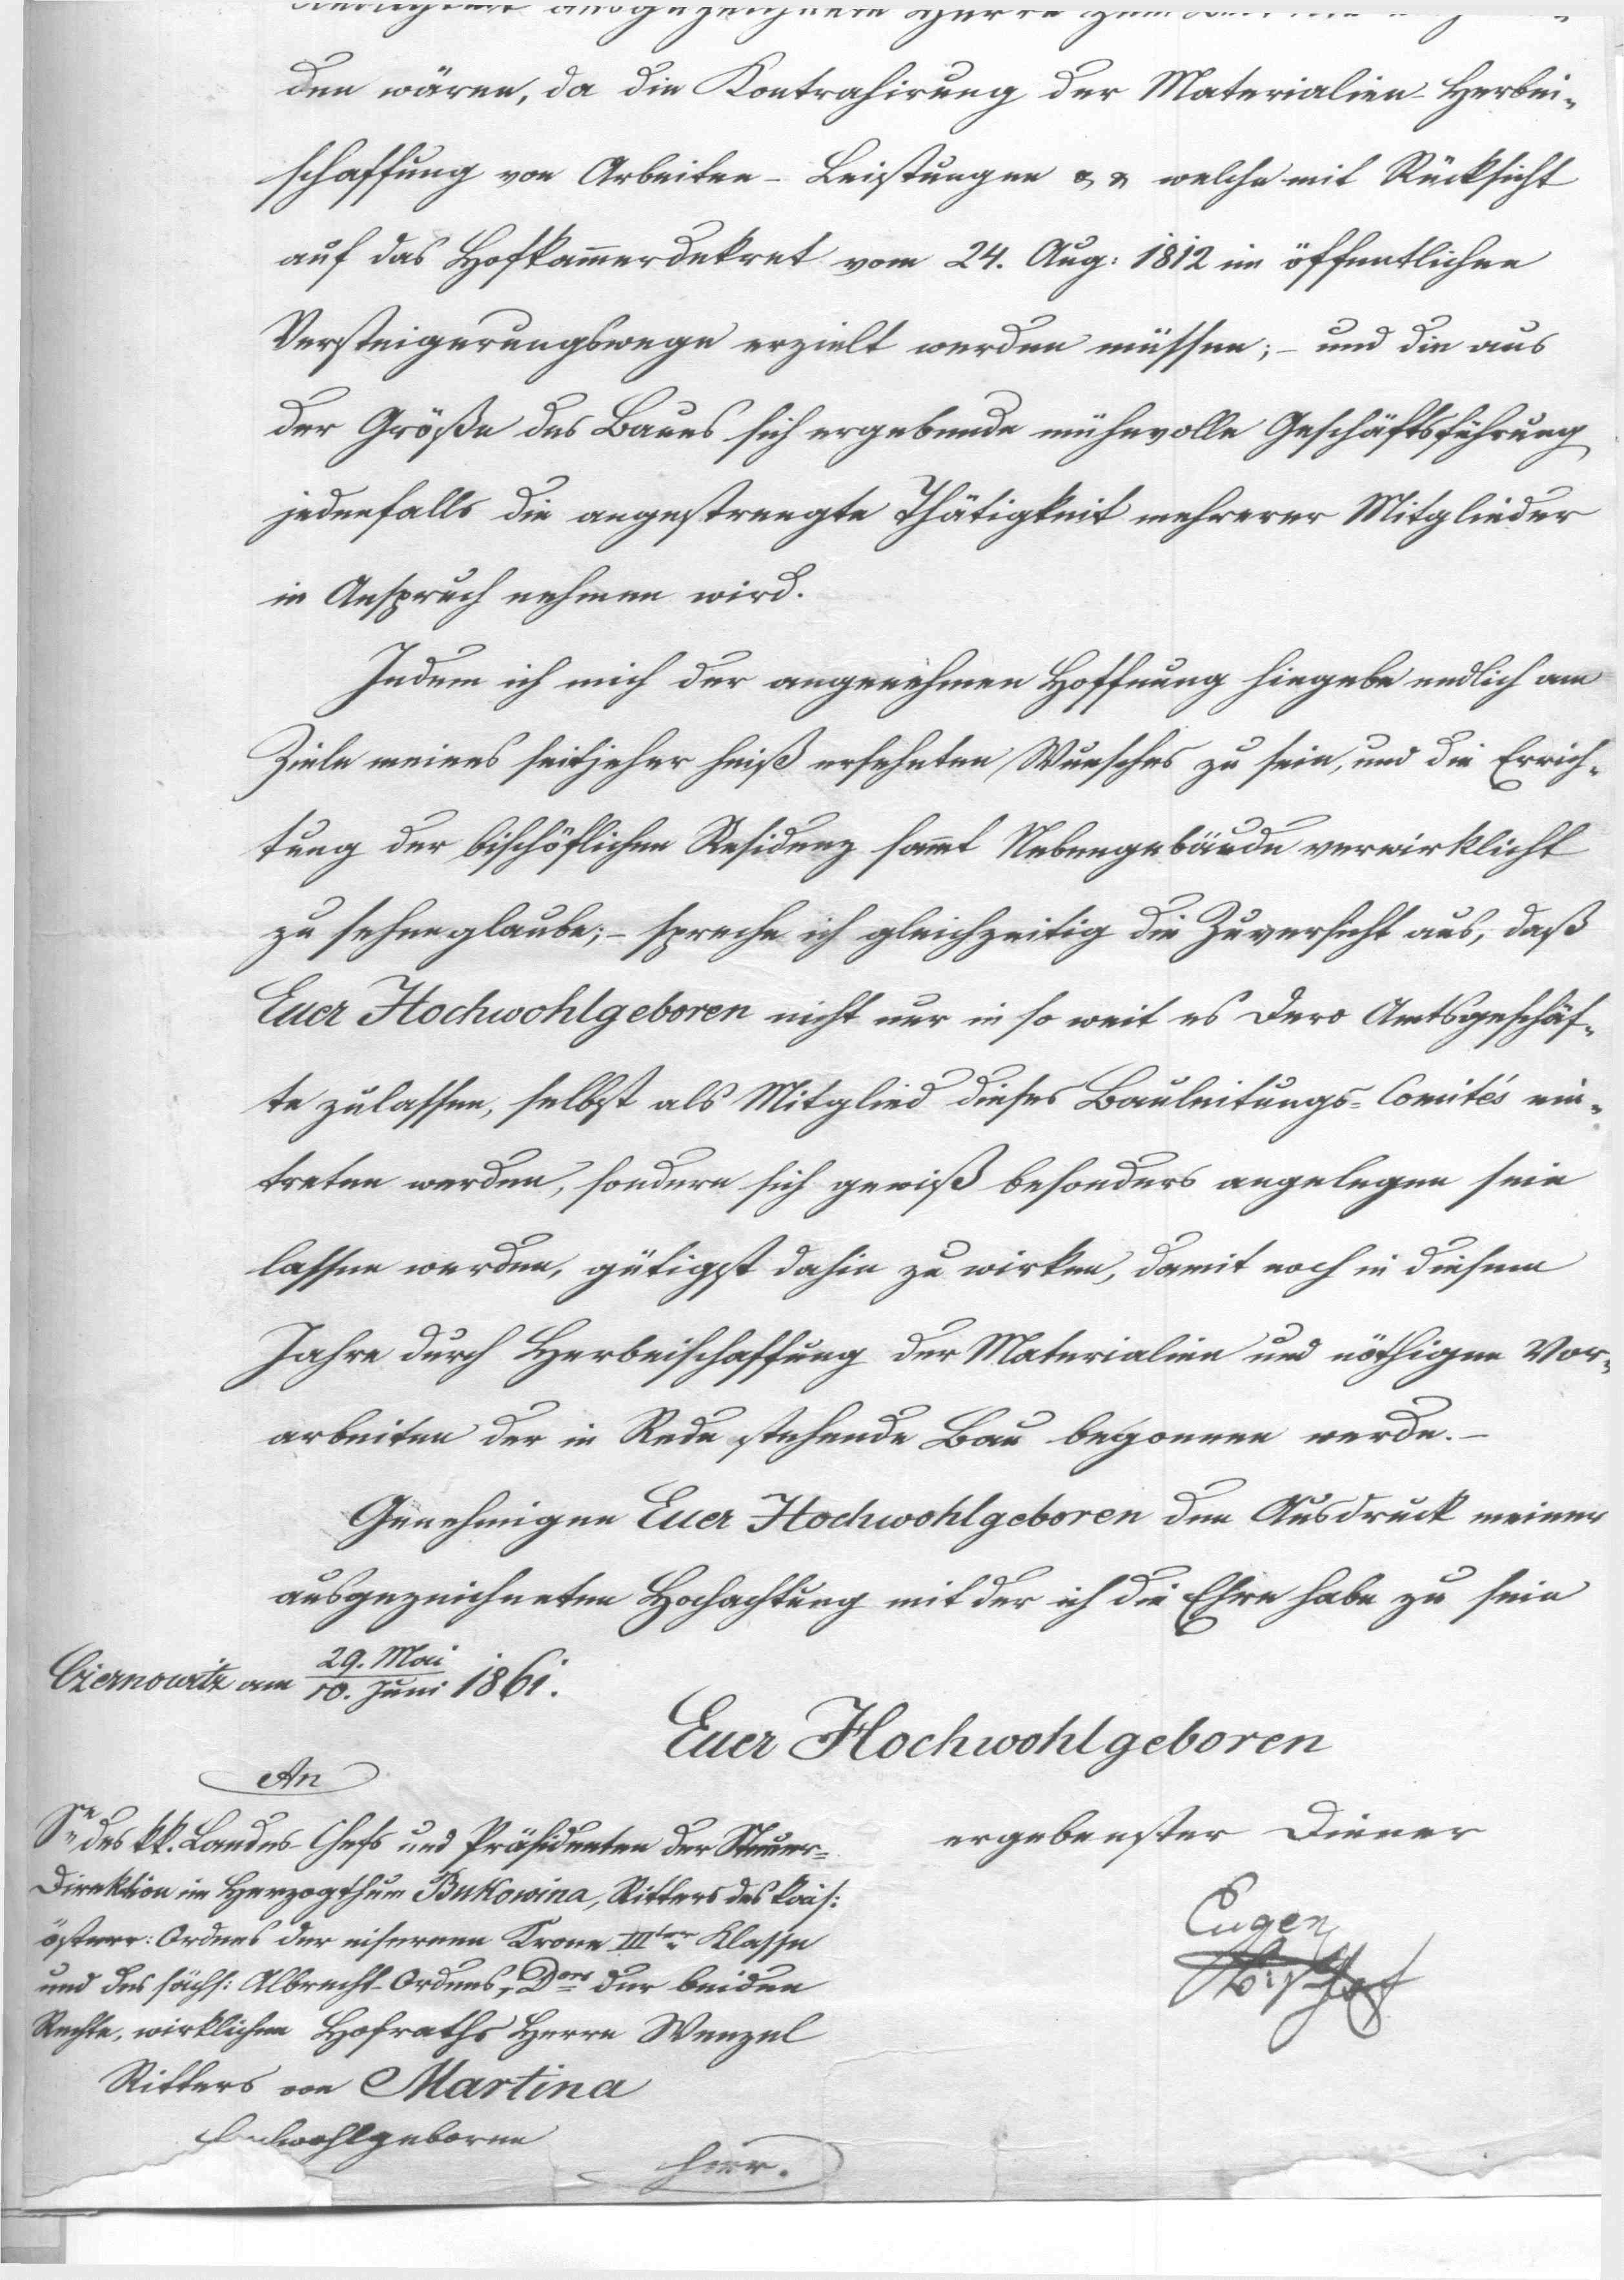 ausgezeichnete Herrn
den wären, da die Kontrahirung der Materialien-Herbei-
schaffung von Arbeiten-Leistungen & & welche mit Rücksicht
auf das Hofkammerdekret vom 24. Aug: 1812 im öffentlichen
Versteigerungswege erzielt werden müssen; – und die aus
der Größe des Baues sich ergebende mühevolle Geschäftsführung
jedenfalls die angestrengte Thätigkeit mehrerer Mitglieder
in Anspruch nehmen wird.
Indem ich mich der angenehmen Hoffnung hingebe endlich am
Ziele meines seitjeher heiß ersehnten Wunsches zu sein, und die Errich-
tung der bischöflichen Residenz sammt Nebengebäude verwirklicht
zu sehen glaube; – spreche ich gleichzeitig die Zuversicht aus, daß
Euer Hochwohlgeboren nicht nur in so weit es Dero Amtsgeschäf-
te zulassen, selbst als Mitglied dieses Bauleitungs-Comités ein-
treten werden, sondern sich gewiß besonders angelegen sein
lassen werden, gütigst dahin zu wirken, damit noch in diesem
Jahre durch Herbeischaffung der Materialien und nöthigen Vor-
arbeiten der in Rede stehende Bau begonnen werde. –
Genehmigen Euer Hochwohlgeboren den Ausdruck meiner
ausgezeichneten Hochachtung mit der ich die Ehre habe zu sein
Czernowitz am 29. Mai / 10. Juni 1861.
Euer Hochwohlgeboren
An
Sr des kk. Landes-Chefs und Präsidenten der Steuer-
Direktion im Herzogthum Bukowina, Ritters des kais:
österr: Ordens der eisernen Krone IIIter Klasse
und des sächs: Albrecht-Ordens, Dors der beiden
Rechte, wirklichen Hofraths Herrn Wenzel
Ritters von Martina
Hochwohlgeboren
hier.
ergebenster Diener
Eugen
Bischof